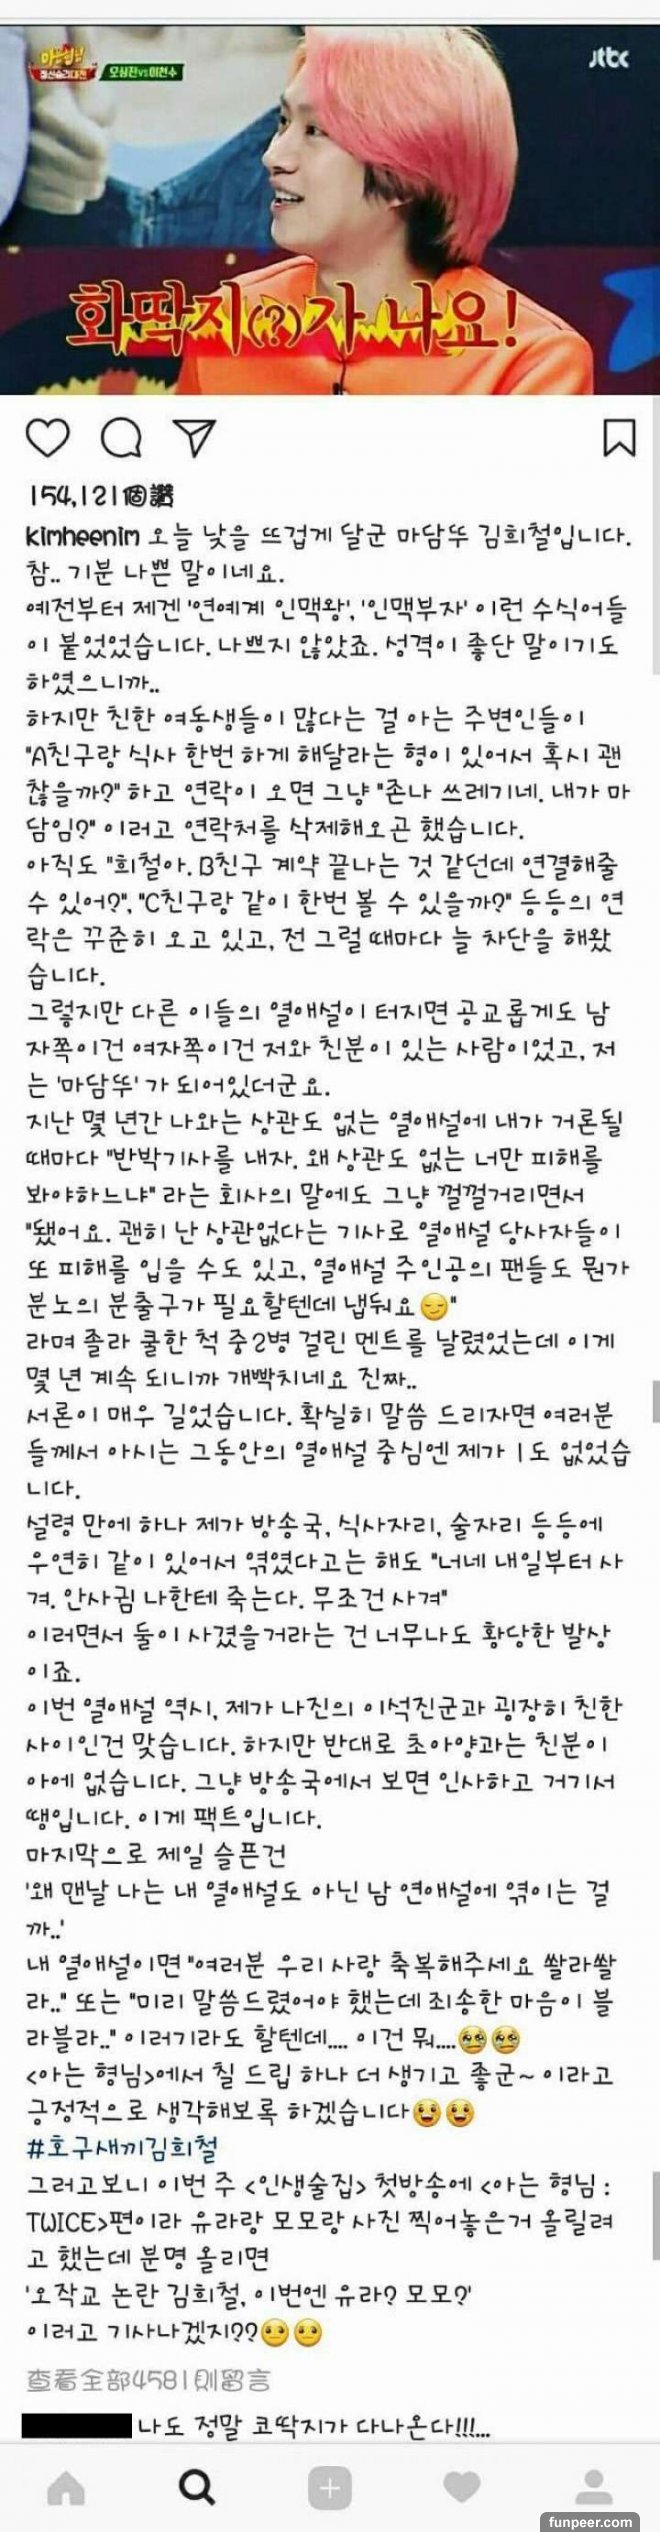 아는형님
정신승리대전
오상진vs이천수
jtbc
화딱지(?)가 나요!
154,121個讚
kimheenim 오늘 낮을 뜨겁게 달군 마담뚜 김희철입니다.
참.. 기분 나쁜 말이네요.
예전부터 제겐 '연예계 인맥왕', '인맥부자' 이런 수식어들
이 붙었었습니다. 나쁘지 않았죠. 성격이 좋단 말이기도
하였으니까..
하지만 친한 여동생들이 많다는 걸 아는 주변인들이
"A친구랑 식사 한번 하게 해달라는 형이 있어서 혹시 괜
찮을까?" 하고 연락이 오면 그냥 "존나 쓰레기네. 내가 마
담임?" 이러고 연락처를 삭제해오곤 했습니다.
아직도 "희철아. B친구 계약 끝나는 것 같던데 연결해줄
수 있어?", "C친구랑 같이 한번 볼 수 있을까?" 등등의 연
락은 꾸준히 오고 있고, 전 그럴 때마다 늘 차단을 해왔
습니다.
그렇지만 다른 이들의 열애설이 터지면 공교롭게도 남
자쪽이건 여자쪽이건 저와 친분이 있는 사람이었고, 저
는 '마담뚜' 가 되어있더군요.
지난 몇 년간 나와는 상관도 없는 열애설에 내가 거론될
때마다 "반박기사를 내자. 왜 상관도 없는 너만 피해를
봐야하느냐" 라는 회사의 말에도 그냥 껄껄거리면서
"됐어요. 괜히 난 상관없다는 기사로 열애설 당사자들이
또 피해를 입을 수도 있고, 열애설 주인공의 팬들도 뭔가
분노의 분출구가 필요할텐데 냅둬요😏"
라며 졸라 쿨한 척 중2병 걸린 멘트를 날렸었는데 이게
몇 년 계속 되니까 개빡치네요 진짜..
서론이 매우 길었습니다. 확실히 말씀 드리자면 여러분
들께서 아시는 그동안의 열애설 중심엔 제가 1도 없었습
니다.
설령 만에 하나 제가 방송국, 식사자리, 술자리 등등에
우연히 같이 있어서 엮였다고는 해도 "너네 내일부터 사
겨. 안사귐 나한테 죽는다. 무조건 사겨"
이러면서 둘이 사겼을거라는 건 너무나도 황당한 발상
이죠.
이번 열애설 역시, 제가 나진의 이석진군과 굉장히 친한
사이인건 맞습니다. 하지만 반대로 초아양과는 친분이
아에 없습니다. 그냥 방송국에서 보면 인사하고 거기서
땡입니다. 이게 팩트입니다.
마지막으로 제일 슬픈건
'왜 맨날 나는 내 열애설도 아닌 남 연애설에 엮이는 걸
까..'
내 열애설이면 "여러분 우리 사랑 축복해주세요 쏼라쏼
라.." 또는 "미리 말씀드렸어야 했는데 죄송한 마음이 블
라블라.." 이러기라도 할텐데.... 이건 뭐....😢😢
<아는 형님>에서 칠 드립 하나 더 생기고 좋군~ 이라고
긍정적으로 생각해보록 하겠습니다😀😀
#호구새끼김희철
그러고보니 이번 주 <인생술집> 첫방송에 <아는 형님 :
TWICE>편이라 유라랑 모모랑 사진 찍어놓은거 올릴려
고 했는데 분명 올리면
'오작교 논란 김희철, 이번엔 유라? 모모?'
이러고 기사나겠지??😐😐
查看全部4581則留言
나도 정말 코딱지가 다나온다!!!...
funpeer.com